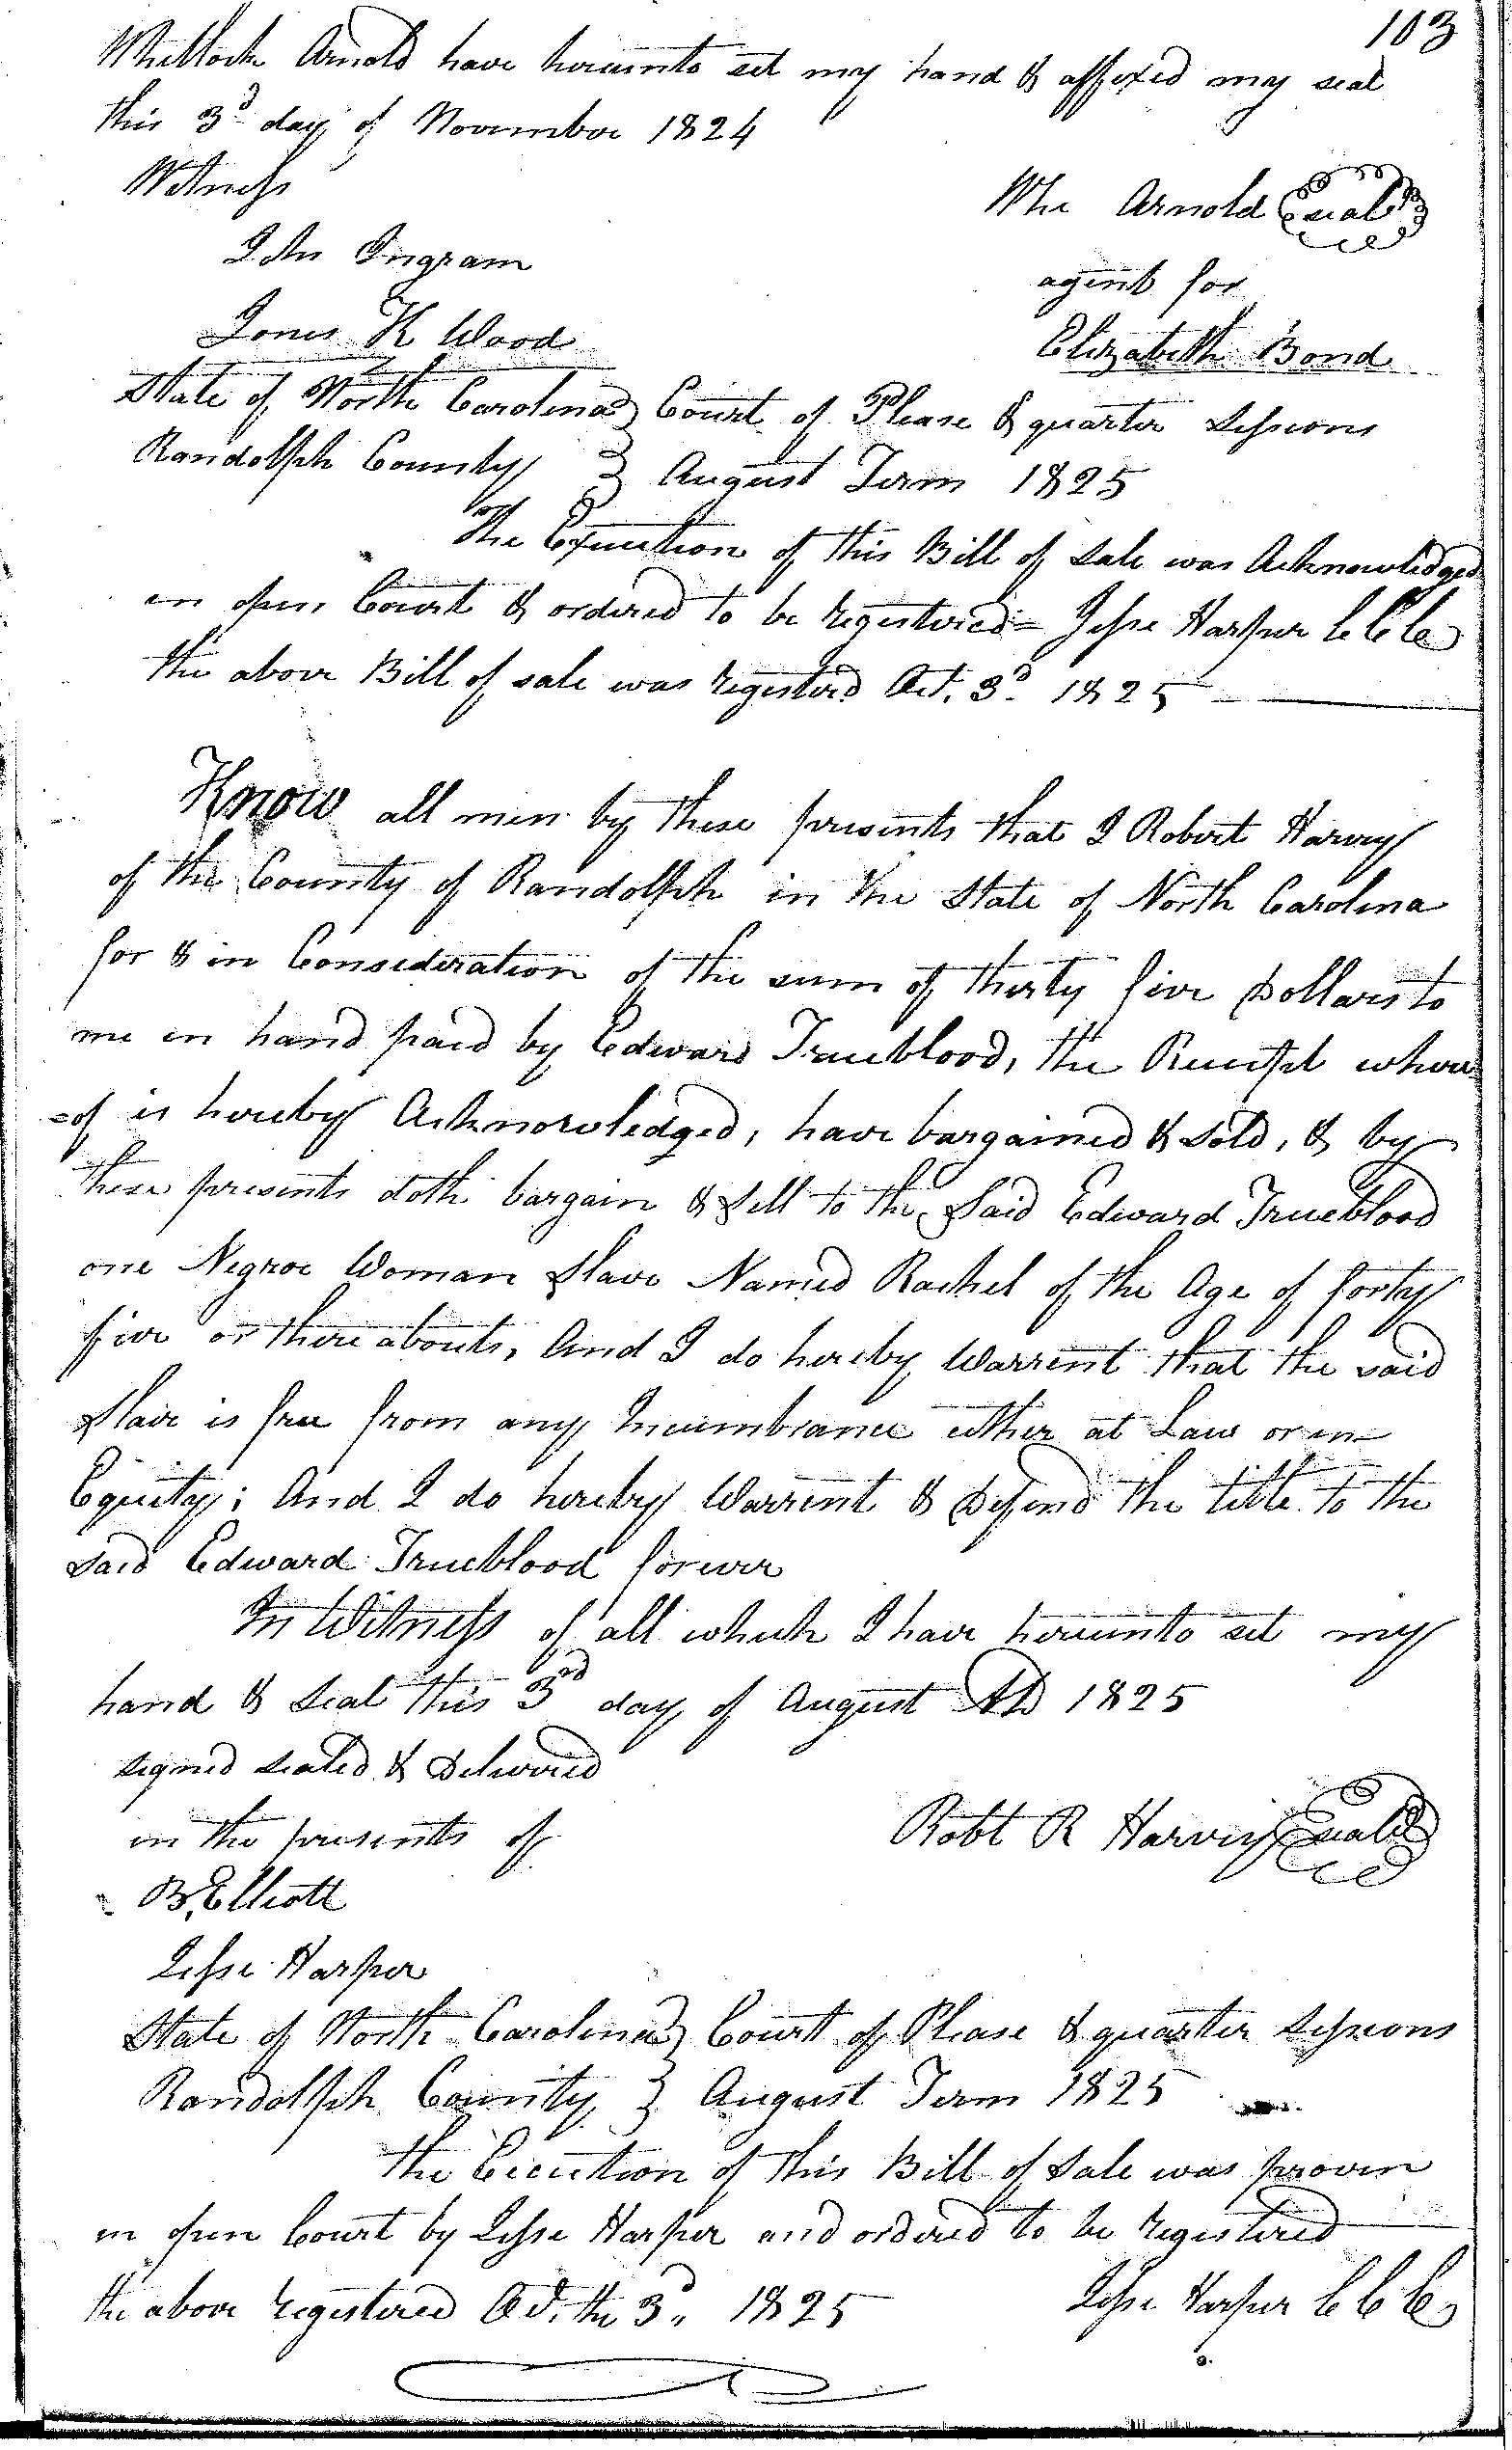 103
Whitlock Arnold have hereunto set my hand & affixed my seal
this 3d day of November 1824
Witness
Whi Arnold seal
Jno Ingram
agent for
Jones K Wood
Elizabeth Bond
State of North Carolina } Court of Please & quarter Sessions
Randolph County } August Term 1825
The Execution of this Bill of Sale was Acknowledged
in open Court & ordered to be registered = Jesse Harper C C C
the above Bill of sale was registerd Oct. 3d 1825
Know all men by these presents that I Robert Harvey
of the County of Randolph in the State of North Carolina
for & in Consideration of the sum of thirty five Dollars to
me in hand paid by Edward Trueblood, the Receipt where
=of is hereby Acknowledged, have bargained & sold, & by
these presents doth bargain & sell to the Said Edward Trueblood
one Negroe Woman Slave Named Rachel of the Age of forty
five or there abouts, And I do hereby Warrent that the said
Slave is free from any Incumbrance either at Law or in
Equity; And I do hereby Warrent & Defend the title to the
said Edward Trueblood forever
In Witness of all which I have hereunto set my
hand & Seal this 3rd day of August AD 1825
signed sealed & Delivered
in the presents of
Robt R Harvey seal
B. Elliott
Jesse Harper
State of North Carolina } Court of Please & quarter Sessions
Randolph County } August Term 1825
the Execution of this Bill of Sale was proven
in open Court by Jesse Harper and ordered to be registered
the above registered Oct. the 3d. 1825
Jesse Harper C C C